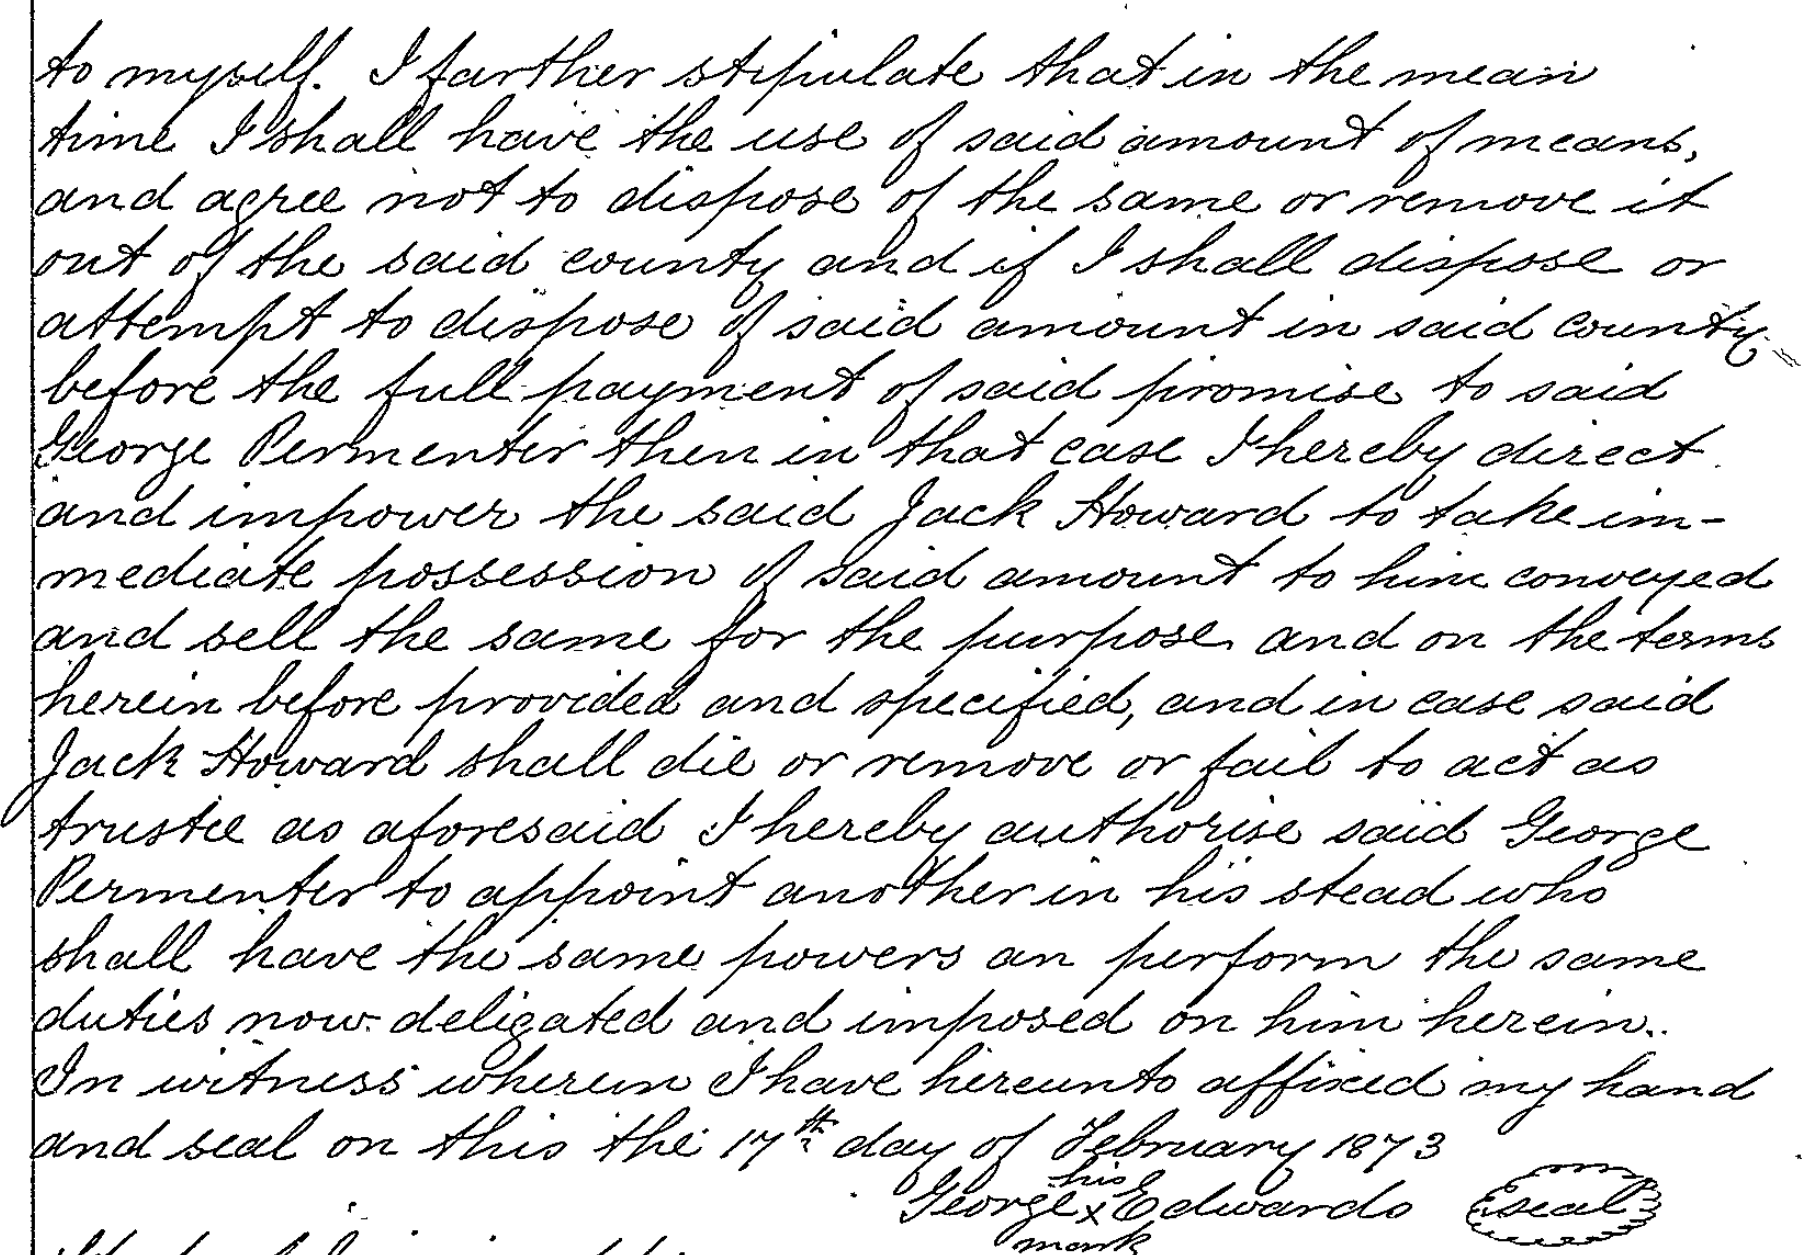 to myself. I farther stipulate that in the mean
time I shall have the use of said amount of means,
and agree not to dispose of the same or remove it
out of the said county and if I shall dispose or
attempt to dispose of said amount in said county
before the full payment of said promise to said
George Permenter then in that case I hereby direct
and impower the said Jack Howard to take im-
mediate possession of said amount to him conveyed
and sell the same for the purpose and on the terms
herein before provided and specified, and in case said
Jack Howard shall die or remove or fail to act as
trustee as aforesaid I hereby authorise said George
Permenter to appoint another in his stead who
shall have the same powers an perform the same
duties now deligated and imposed on him herein.
In witness wherein I have hereunto affixed my hand
and seal on this the 17th day of February 1873
his
George x Edwards seal
mark